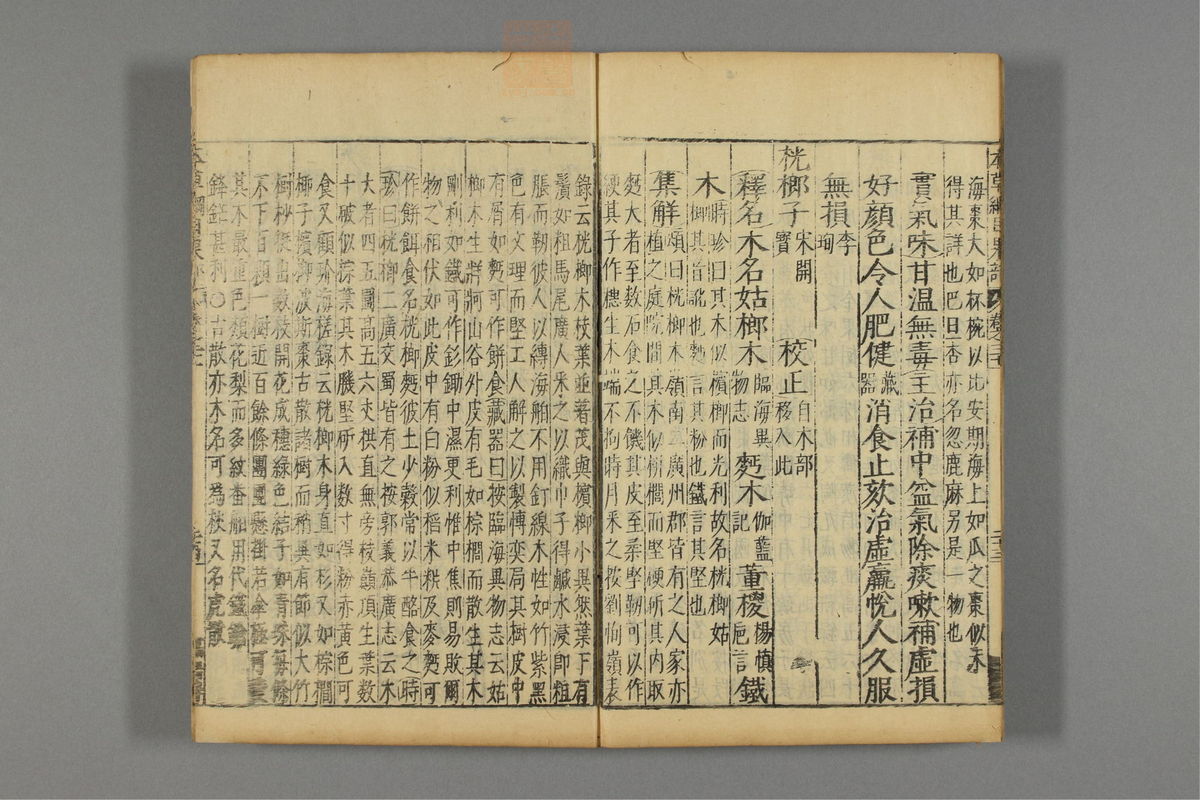 海棗大如杯椀以比安期海上如瓜之棗似未
得其詳也巴旦杏亦名忽鹿麻另是一物也
實氣味甘温無毒主治補中益氣除痰嗽補虛損
好顔色令人肥健藏器消食止欬治虛羸悅人久服
無損李珣
桄榔子宋開寶 校正自木部移入此
釋名木名姑榔木臨海異物志 麪木伽藍記 董㮨楊慎巵言 鐵
木時珍曰其木似檳榔而光利故名桄榔姑
榔其音訛也麪言其粉也鐵言其堅也
集解頌曰桄榔木嶺南二廣州郡皆有之人家亦
植之庭院間其木似栟櫚而堅硬斫其內取
麪大者至数石食之不饑其皮至柔堅韌可以作
綆其子作穗生木端不拘時月采之按劉恂嶺表
錄云桄榔木枝葉並蕃茂與檳榔小異然葉下有
鬚如粗馬尾廣人采之以織巾子得鹹水浸即粗
脹而韌彼人以縛海舶不用釘線木性如竹紫黑
色有文理而堅工人解之以製博奕局其樹皮中
有屑如麪可作餅食藏器曰按臨海異物志云姑
榔木生牂牁山谷外皮有毛如棕櫚而散生其木
剛利如鐵可作釤鋤中濕更利惟中焦則易敗爾
物之相伏如此皮中有白粉似稻米粉及麥麪可
作餅餌食名桄榔麪彼土少榖常以牛酪食之時
珍曰桄榔二廣交蜀皆有之按郭義恭廣志云木
大者四五圍高五六丈拱直無旁枝巔頂生葉数
十破似棕葉其木肌堅斫入数寸得粉赤黃色可
食又顧玠海槎錄云桄榔木身直如杉又如棕櫚
椰子檳榔波斯棗古散諸樹而稍異有節似大竹
樹杪挺出数枝開花成穗綠色結子如青珠每條
不下百顆一樹近百餘條團團懸掛若傘極可
其木最重色類花梨而多紋番舶用代鐵
鋒鋩甚利○古散亦木名可為杖又名